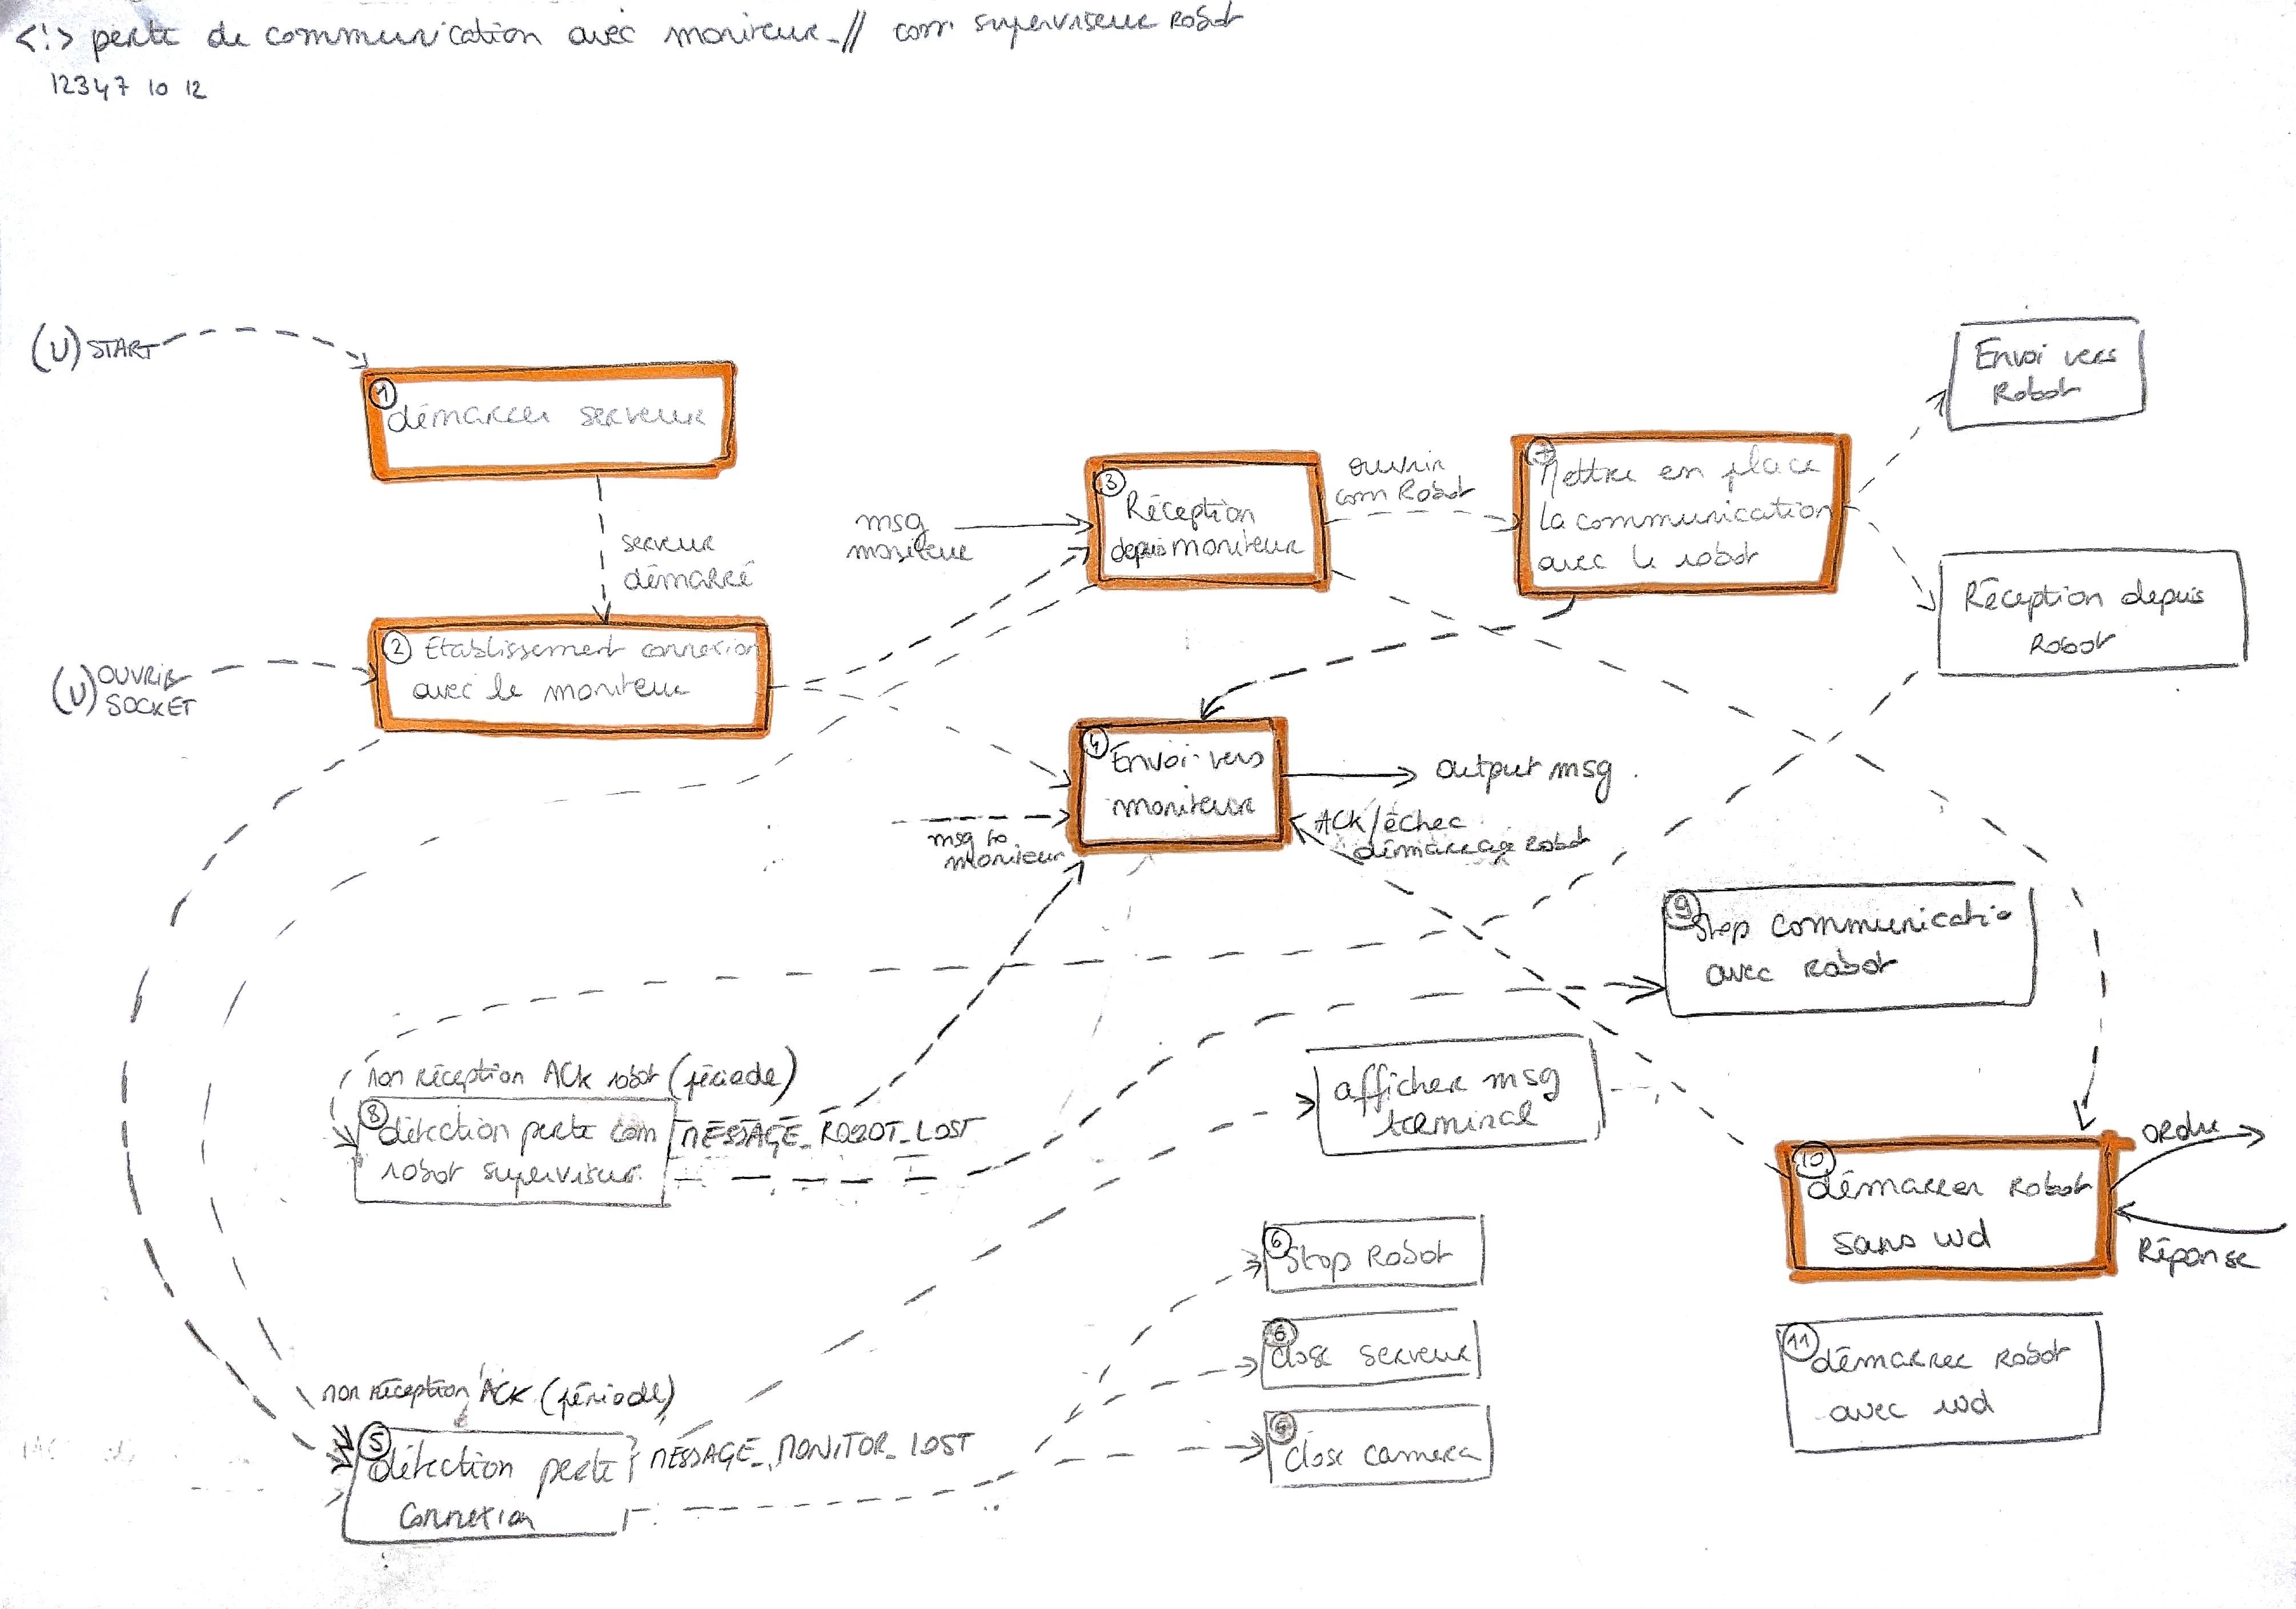 <!> perte de communication avec moniteur_// com superviseur Robot
12347 10 12
(U) START
1
démarrer serveur
serveur
démarré
(U) OUVRIR
SOCKET
2 Etablissement connexion
avec le moniteur
msg
moniteur
3
Réception
depuis moniteur
ouvrir
com Robot
7
Mettre en place
la communication
avec le robot
Envoi vers
Robot
Réception depuis
Robot
4
Envoi vers
moniteur
output msg
msg to
moniteur
ACK/échec
démarrage robot
9
Stop communicatio
avec robot
non réception ACK robot (période)
8
détection perte com
robot superviseur
MESSAGE_ROBOT_LOST
afficher msg
terminal
10
démarrer robot
sans wd
ordre
Réponse
6
Stop Robot
6
close serveur
close camera
11
démarrer robot
avec wd
non réception ACK (période)
5
détection perte
connexion
MESSAGE_MONITOR_LOST